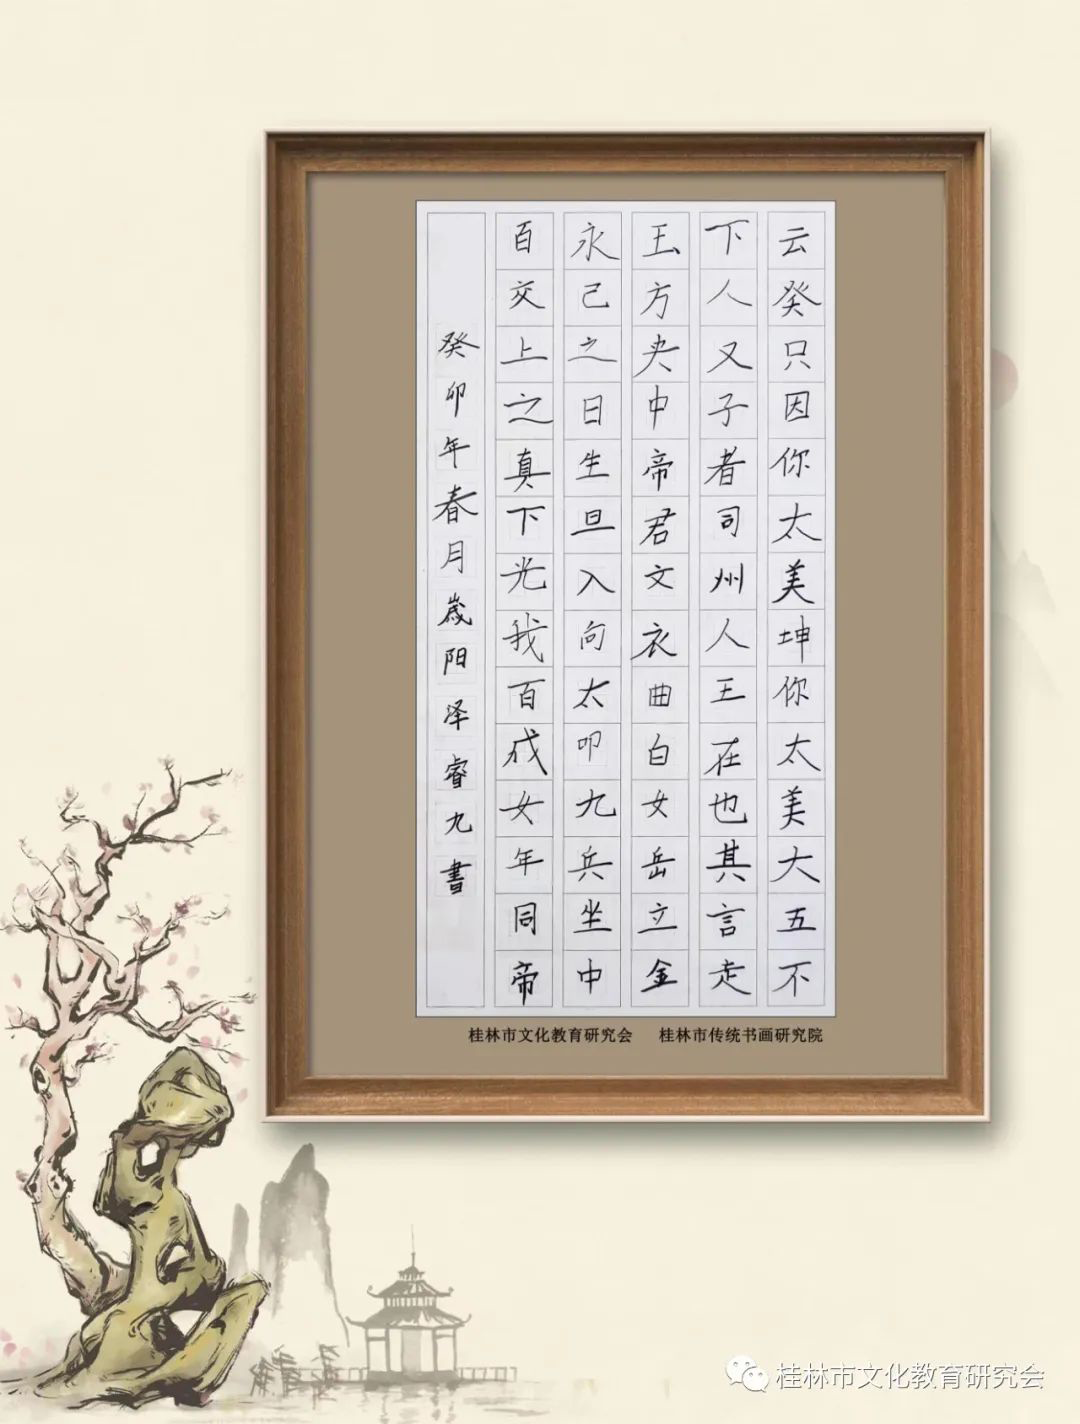 云癸只因你太美坤你太美大五不
下人又子者司州人王在也其言走
玉方夫中帝君文衣曲白女岳立金
永己之日生旦入向太叩九兵坐中
百交上之真下光我百成女年同帝
癸卯年春月岁阳泽睿九書
桂林市文化教育研究会 桂林市传统书画研究院
桂林市文化教育研究会